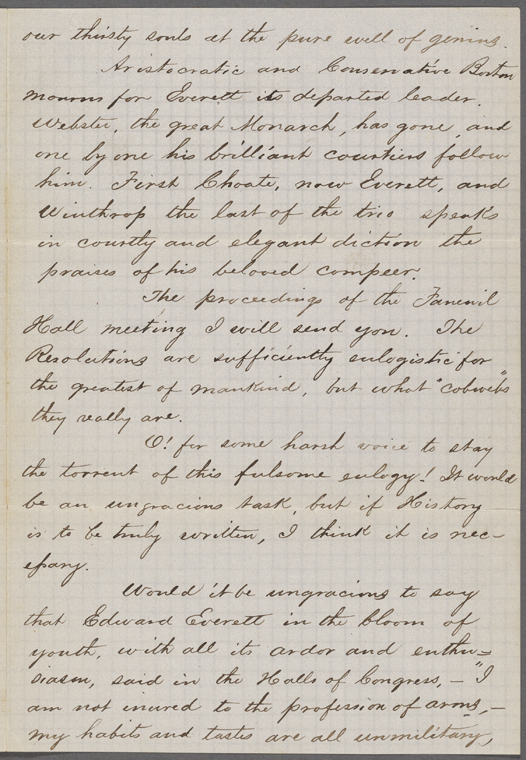 our thirsty souls at the pure well of genius.
Aristocratic and Conservative Boston
mourns for Everett its departed leader.
Webster, the great Monarch, has gone, and
one by one his brilliant courtiers follow
him. First Choate, now Everett, and
Winthrop the last of the trio speaks
in courtly and elegant diction the
praises of his beloved compeer.
The proceedings of the Faneuil
Hall meeting I will send you. The
Resolutions are sufficiently eulogistic for
the greatest of mankind, but what "cobwebs"
they really are.
O! for some harsh voice to stay
the torrent of this fulsome eulogy! It would
be an ungracious task, but if History
is to be truly written, I think it is nec-
essary.
Would it be ungracious to say
that Edward Everett in the bloom of
youth, with all its ardor and enthu=
siasm, said in the Halls of Congress, – "I
am not inured to the profession of arms, –
my habits and tastes are all unmilitary,